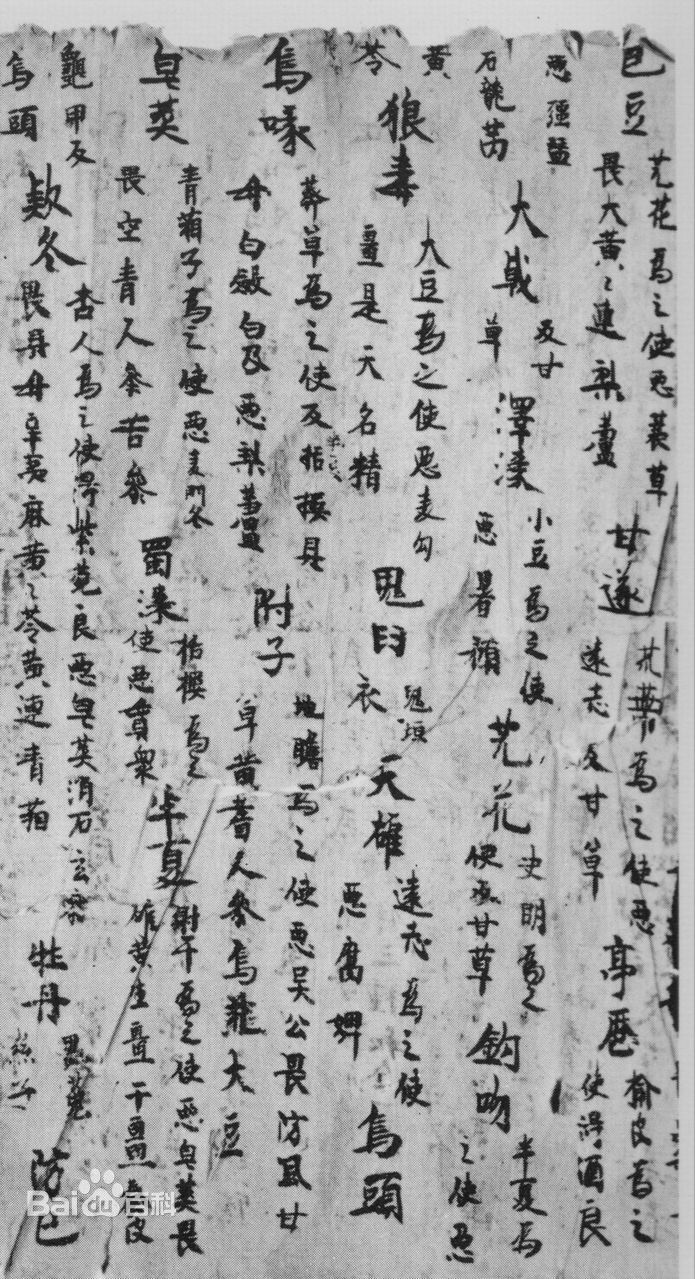 巴豆
芫花為之使惡蘘草
畏大黃〻連梨蘆
甘遂
苽蔕為之使惡
遠志反甘草
亭歷
榆皮為之
使得酒良
惡彊蠱
石龍芮
大戟
反甘
草
澤漆
小豆為之使
惡暑預
芫花
史明為之
使反甘草
鈎吻
半夏為
之使惡
黃
苓
狼毒
大豆為之使惡麦勾
置是天名精
鬼臼
鬼垣
衣
天雄
遠志為之使
惡腐婢
烏頭
烏喙
莽草為之使反半夏栝樓貝
母白斂白及惡梨蘆
附子
地膽為之使惡吴公畏防風甘
草黃耆人參烏韮大豆
皂莢
青葙子為之使惡麦門冬
畏空青人參苦參
蜀漆
栝樓為之
使惡貫衆
半夏
射干為之使惡皂莢畏
雄黃生薑干薑皮
龜甲反
烏頭
款冬
杏人為之使得紫菀良惡皂莢消石玄參
畏貝母辛荑麻黃〻苓黃連青葙
牡丹
畏菟
絲子
防己
Baidu百科